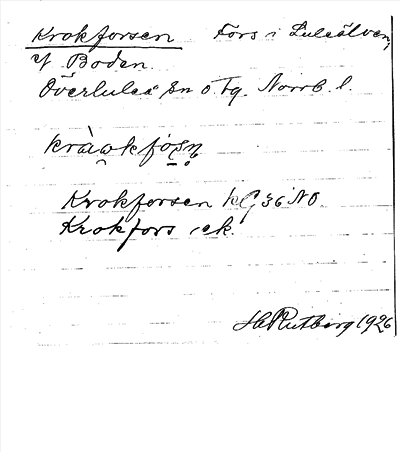 Krokforsen Fors i Luleälven,
Y Boden.
Överluleå sn o. tg. Norrb. l.
Krokforsen KG 36 NO.
Krokfors ek.
H Rutberg 1926